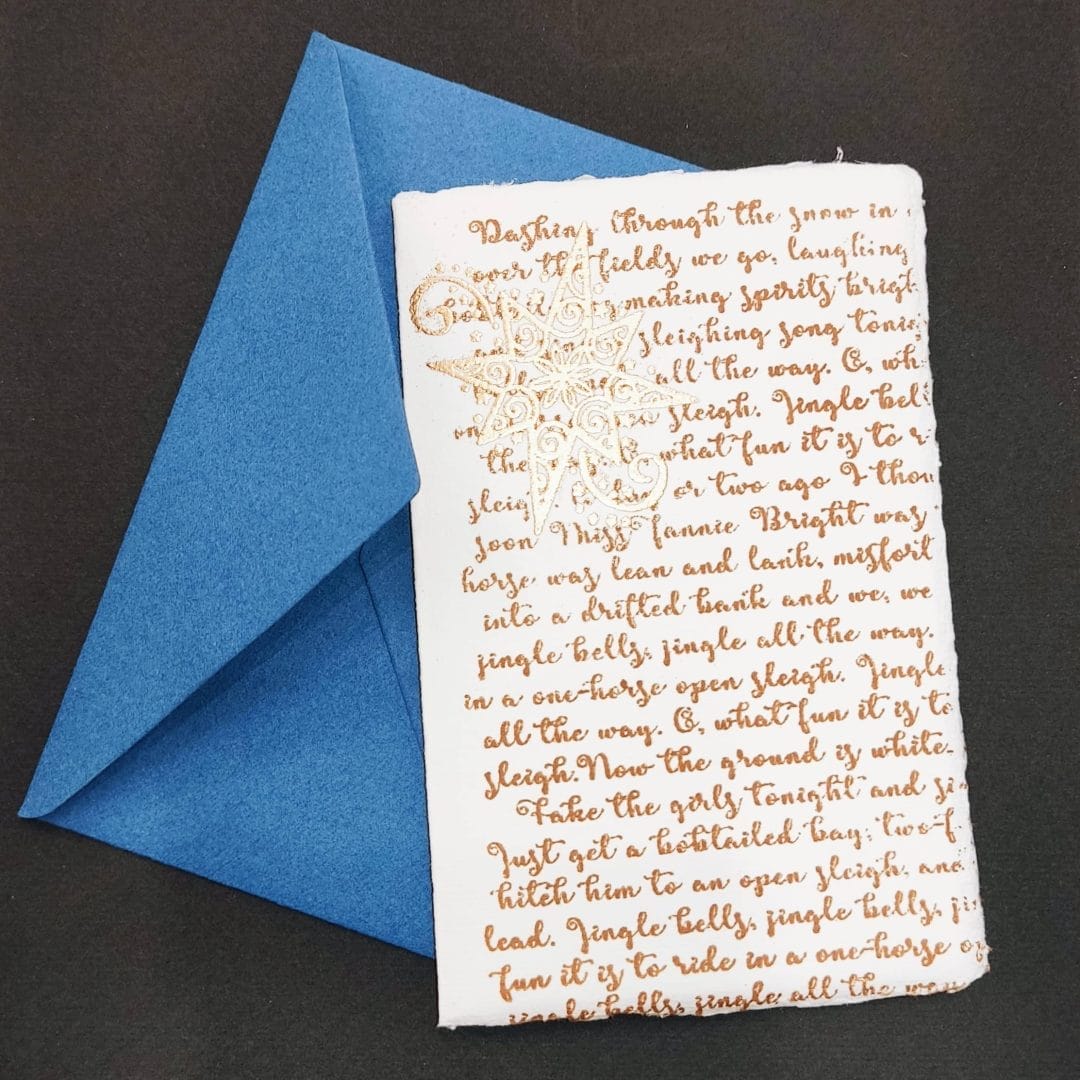 Dashing through the snow in
over the fields we go, laughing
making spirits bright
sleighing song
all the way. O, wh
sleigh. Jingle bel
the what fun it is to r
sleigh. or two ago I thou
soon Miss Fannie Bright was
horse was lean and lank, misfort
into a drifted bank and we, we
jingle bells, jingle all the way.
in a one-horse open sleigh. Jingle
all the way. O, what fun it is to
sleigh. Now the ground is white
Take the girls tonight and si
Just get a bobtailed bay, two-f
hitch him to an open sleigh, and
lead. Jingle bells, jingle bells, ji
fun it is to ride in a one-horse o
jingle bells, jingle all the way